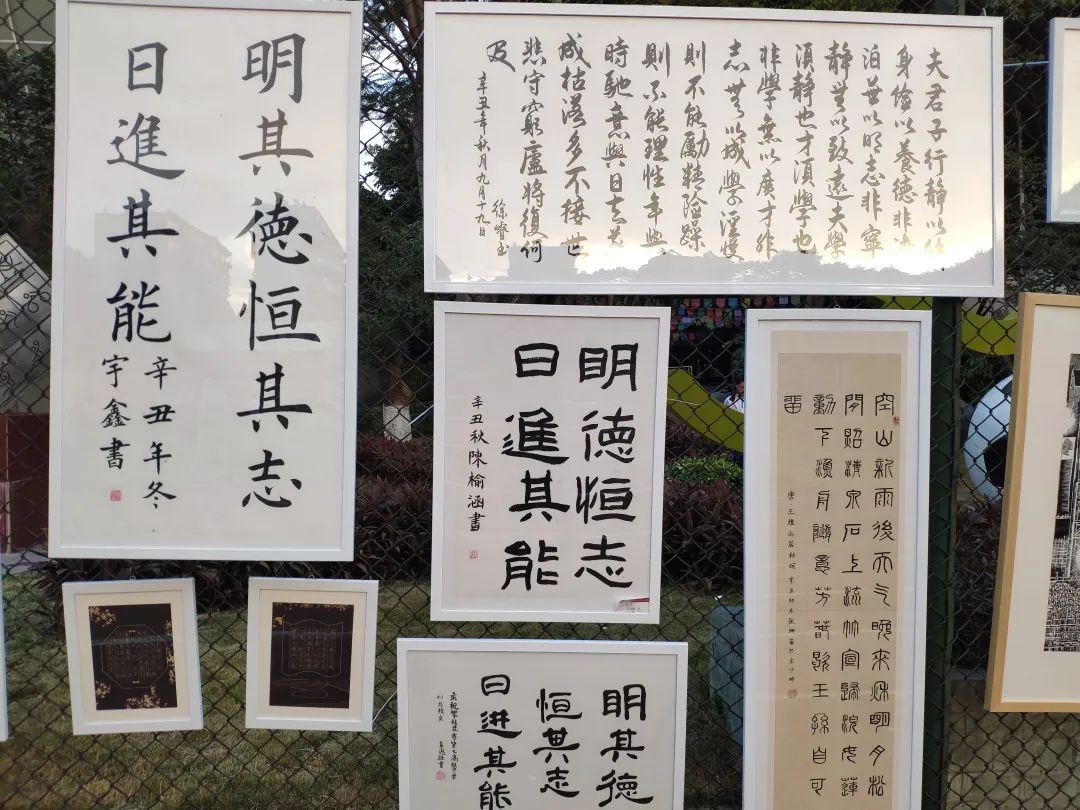 明其德恒其志
日進其能
辛丑年冬
宇鑫書
夫君子行静以修
身儉以養德非澹
泊無以明志非寧
静無以致遠夫學
須静也才須學也
非學無以廣才非
志無以成學淫慢
則不能勵精險躁
則不能理性年與
時馳意與日去遂
成枯落多不接世
悲守窮廬將復何
及
辛丑年秋月九月十九日
明德恒志
日進其能
辛丑秋陳榆涵書
空山新雨後天气晚來秋明月松
間照清泉石上流竹喧歸浣女蓮
動下漁舟隨意芳菲歇王孫自可
留
唐王維山居秋暝辛丑初冬
明其德
恒其志
日进其能